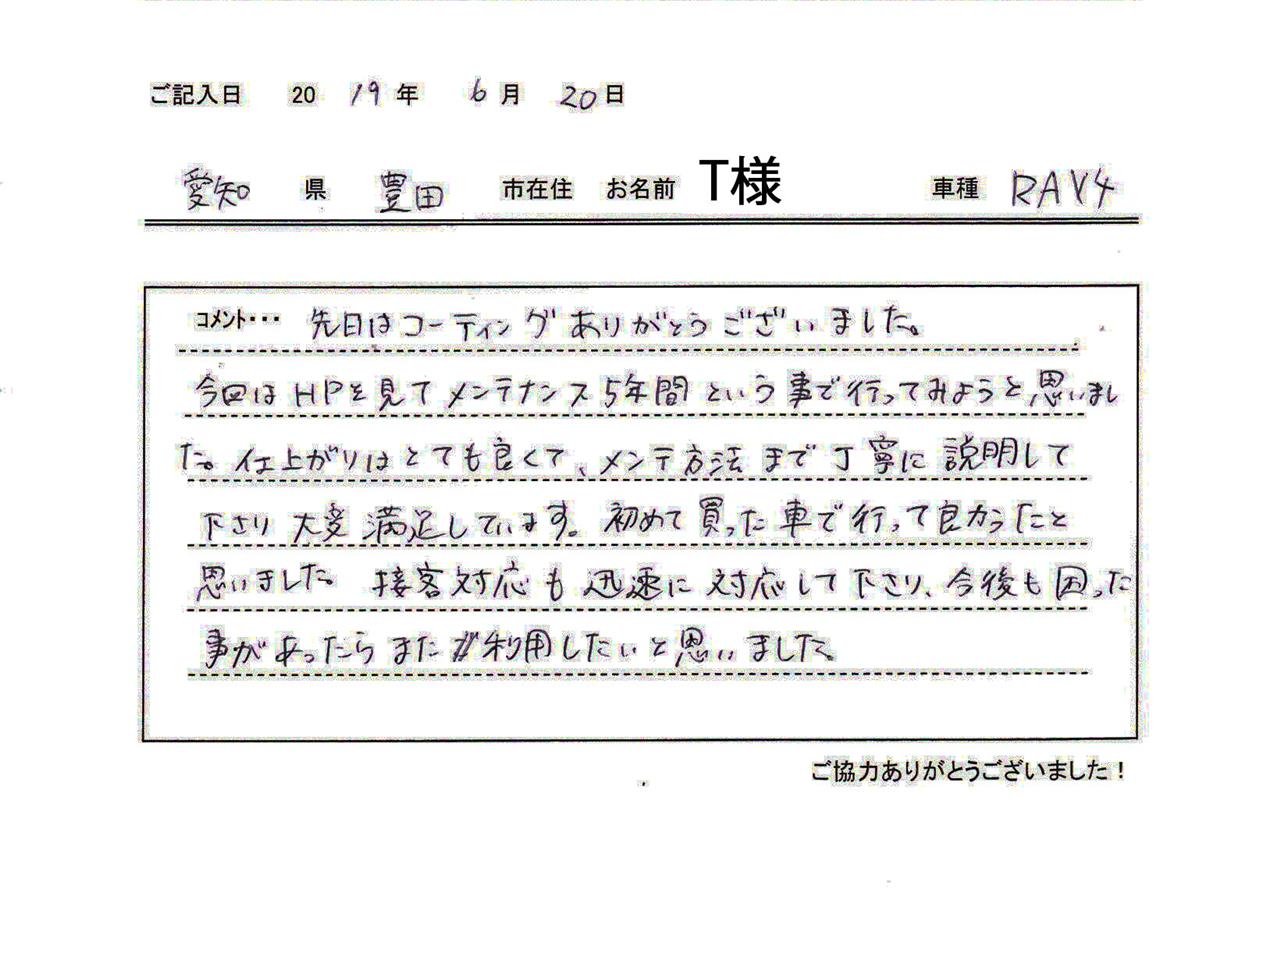 ご記入日 2019年 6月 20日
愛知 県 豊田 市在住 お名前 T様 車種 RAV4
コメント・・・ 先日はコーティングありがとうございました。
今回はHPを見てメンテナンス5年間という事で行ってみようと思いまし
た。仕上がりはとても良くて、メンテ方法まで丁寧に説明して
下さり大変満足しています。初めて買った車で行って良かったこと
思いました。接客対応も迅速に対応して下さり、今後も困った
事があったらまた利用したいと思いました。
ご協力ありがとうございました！